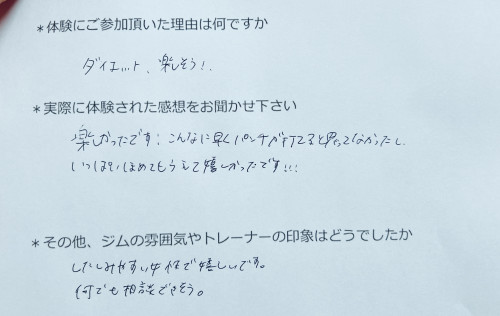 *体験にご参加頂いた理由は何ですか
ダイエット、楽しそう!.
*実際に体験された感想をお聞かせ下さい
楽しかったです! こんなに早くパンチが打てると思ってなかったし、
いっぱいほめてもらえて嬉しかったです!!!
*その他、ジムの雰囲気やトレーナーの印象はどうでしたか
したしみやすい女性で嬉しいです。
何でも相談できそう。